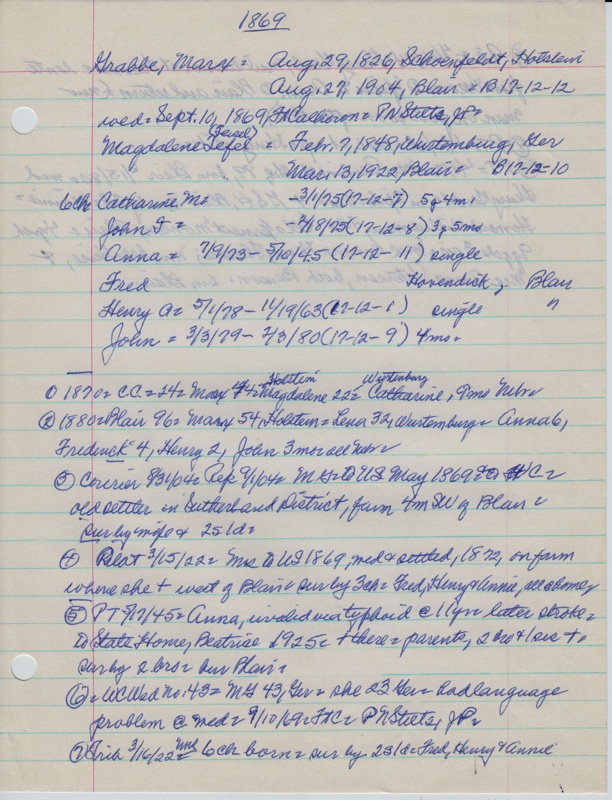 1869
Grabbe, Marx = Aug. 29, 1826, Schoenfeldt, Holstein
Aug. 27, 1904, Blair = B17-12-12
wed = Sept. 10, 1869, Ft Calhoun = P N Stilts, JP =
(Tesel)
Magdalene Sefel = Febr. 7, 1848, Wurtemburg, Ger
Mar. 13, 1922, Blair = B17-12-10
6ch = Catharine M = -3/1/75 (17-12-7) 5y 4m
John F = -2/18/75 (17-12-8) 3y 5mo
Anna = 7/9/73 - 5/10/45 (17-12-11) single
Fred Hovendick, Blair
Henry A = 5/1/78 - 11/19/63 (17-12-1) single "
John = 3/3/79 - 2/3/80 (17-12-9) 4mo =
Holstein Wurtenburg
① 1870 = CC = 24 = Marx 44 = Magdalene 22 = Catharine, 9mo Neb =
② 1880 = Blair 96 = Marx 54, Holstein = Lena 32, Wurtemburg = Anna 6,
Frederick 4, Henry 2, John 3mo = all Neb =
③ Courier 8/31/04 = Rep 9/1/04 = to US May 1869 =
old settler in Sutherland District, farm 4m SW of Blair =
sur by wife & 2s 1d =
④ Pilot 3/15/22 = Mrs to US 1869, wed & settled, 1872, on farm
where she + west of Blair = sur by 3ch = Fred, Henry & Annie, all @ home,
⑤ PT 5/17/45 = Anna, invalid via typhoid @ 11yr = later stroke =
to State Home, Beatrice 1925 = + there = parents, 2 bro & 1 sis + =
sur by 2 bro = bur Blair =
⑥ = WCWed no. 43 = M 43, Ger = she 23 Ger = had language
problem @ wed = 9/10/69 = FtC = P N Stilts, JP =
⑦ Trib 3/16/22 = Mrs 6ch born = sur by 2s 1d = Fred, Henry & Annie